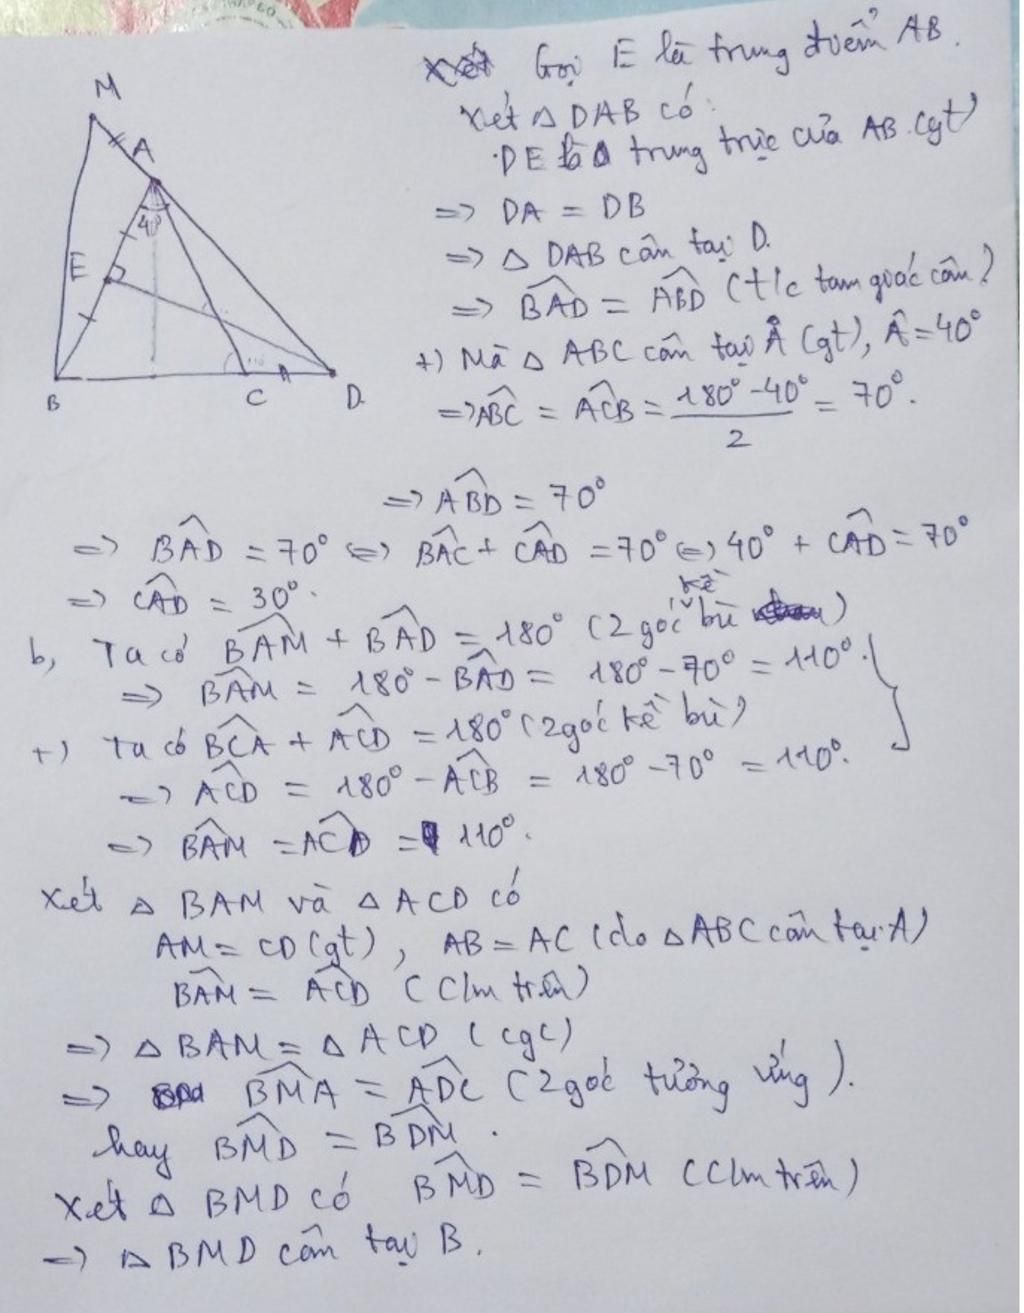 M
A
40°
E
B
C
D
Gọi E là trung điểm AB.
Xét △ DAB có:
DE là trung trực của AB (gt)
=> DA = DB
=> △ DAB cân tại D.
=> \widehat{BAD} = \widehat{ABD} (t/c tam giác cân)
+) Mà △ ABC cân tại A (gt), \widehat{A} = 40°
=> \widehat{ABC} = \widehat{ACB} = \frac{180° - 40°}{2} = 70°.
=> \widehat{ABD} = 70°
=> \widehat{BAD} = 70° <=> \widehat{BAC} + \widehat{CAD} = 70° <=> 40° + \widehat{CAD} = 70°
=> \widehat{CAD} = 30°.
b, Ta có \widehat{BAM} + \widehat{BAD} = 180° (2 góc kề bù)
=> \widehat{BAM} = 180° - \widehat{BAD} = 180° - 70° = 110°.
+) Ta có \widehat{BCA} + \widehat{ACD} = 180° (2 góc kề bù)
=> \widehat{ACD} = 180° - \widehat{ACB} = 180° - 70° = 110°.
=> \widehat{BAM} = \widehat{ACD} = 110°.
Xét △ BAM và △ ACD có
AM = CD (gt), AB = AC (do △ ABC cân tại A)
\widehat{BAM} = \widehat{ACD} (Clm trên)
=> △ BAM = △ ACD (cgc)
=> \widehat{BMA} = \widehat{ADC} (2 góc tưởng ứng).
hay \widehat{BMD} = \widehat{BDM}.
Xét △ BMD có \widehat{BMD} = \widehat{BDM} (Clm trên)
=> △ BMD cân tại B.